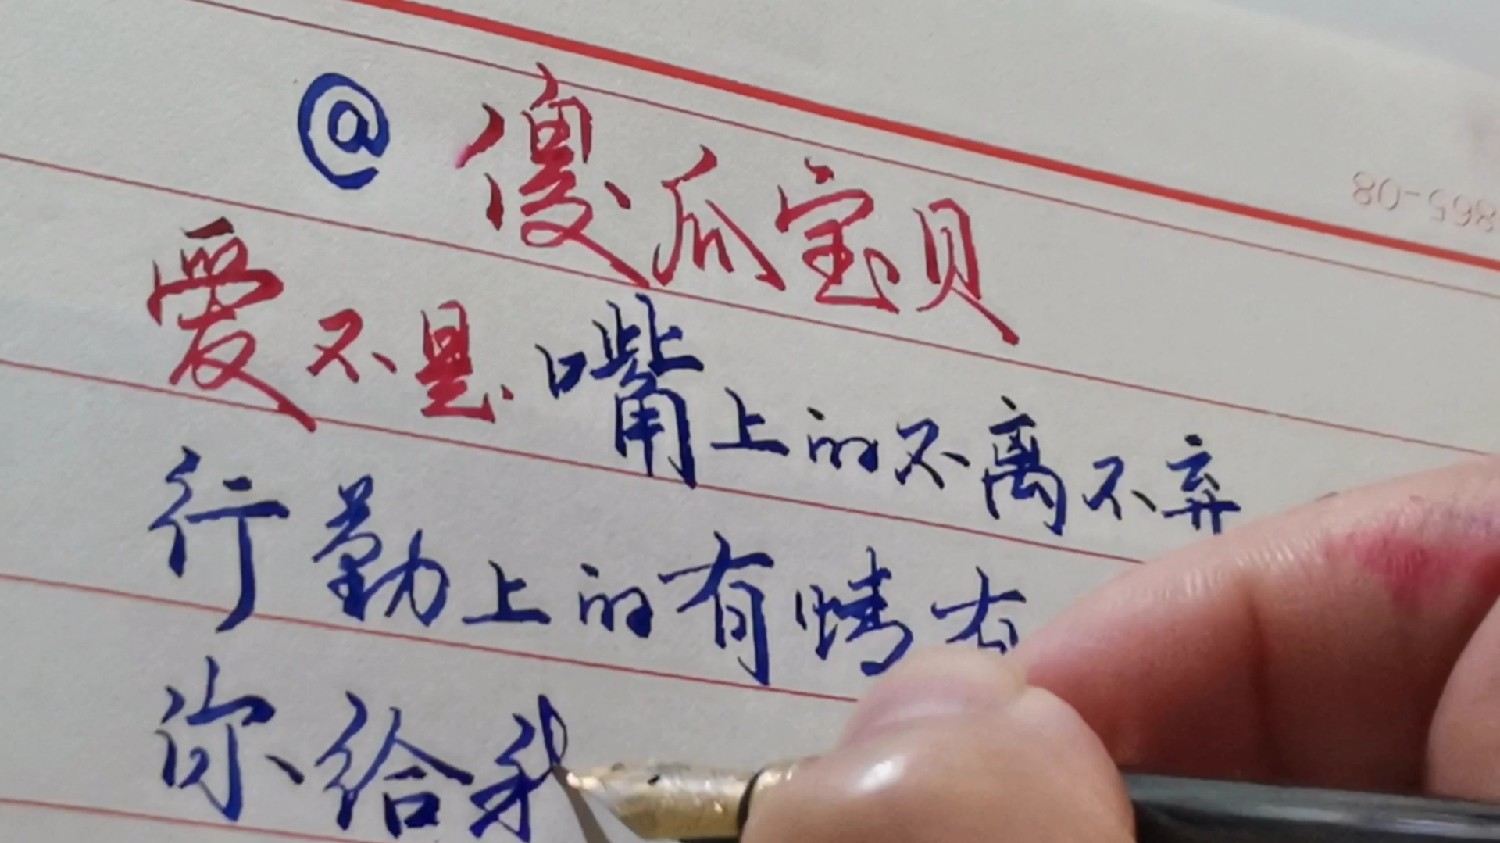 @傻瓜宝贝
爱不是嘴上的不离不弃
行勤上的有
你给我
865-08